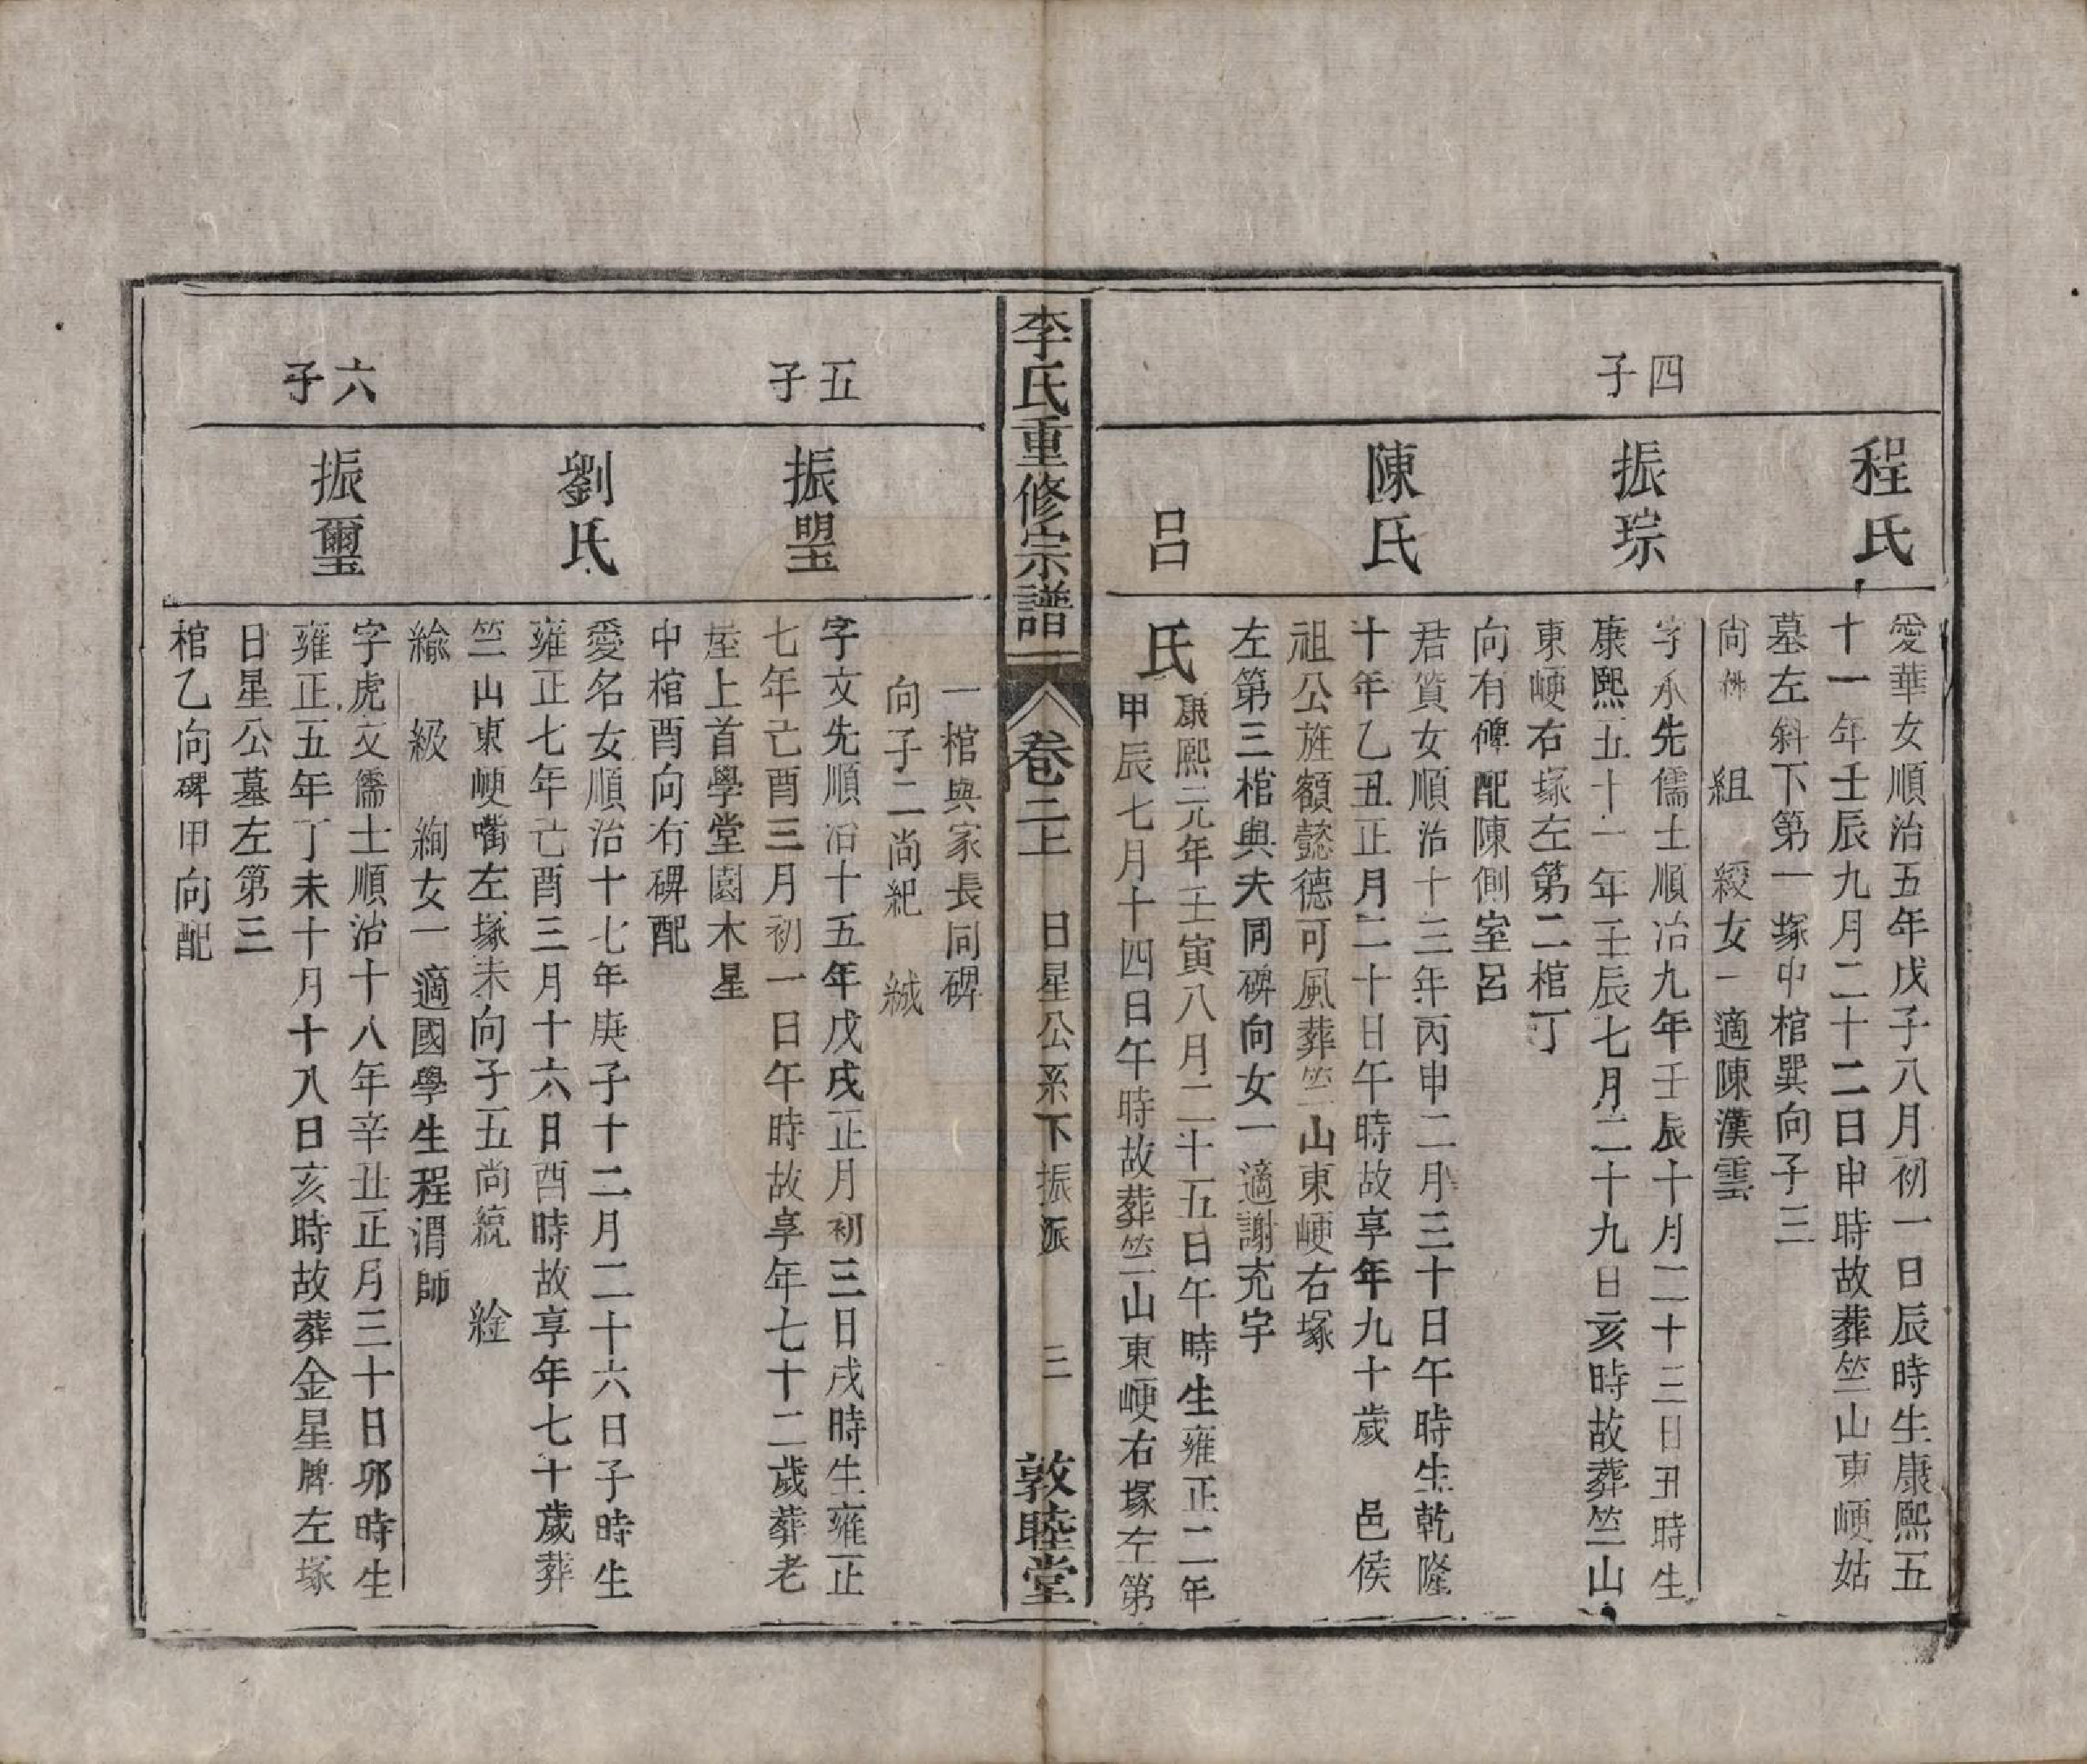 程氏
愛華女順治五年戊子八月初一日辰時生康熙五
十一年壬辰九月二十二日申時故葬竺山東崾姑
墓左斜下第一塚中棺巽向子三
尚 組 綬女一適陳漢雲
四子
振琮
字承先儒士順治九年壬辰十月二十三日丑時生
康熙五十一年壬辰七月二十九日亥時故葬竺山
東崾右塚左第二棺丁
向有碑配陳側室呂
陳氏
君質女順治十三年丙申二月三十日午時生乾隆
十年乙丑正月二十日午時故享年九十歲 邑侯
祖公旌額懿德可風葬竺山東崾右塚
左第三棺與夫同碑向女一適謝充宇
呂氏
康熙元年壬寅八月二十五日午時生雍正二年
甲辰七月十四日午時故葬竺山東崾右塚左第
李氏重修宗譜 卷二上 日星公系下振派 三 敦睦堂
一棺與家長同碑
向子二尚紀 緎
五子
振琞
字文先順治十五年戊戌正月初三日戌時生雍正
七年己酉三月初一日午時故享年七十二歲葬老
屋上首學堂園木星
中棺酉向有碑配
劉氏
愛名女順治十七年庚子十二月二十六日子時生
雍正七年己酉三月十六日酉時故享年七十歲葬
竺山東崾嘴左塚未向子五尚統 絵
緰 級 絢女一適國學生程渭師
六子
振璽
字虎文儒士順治十八年辛丑正月三十日卯時生
雍正五年丁未十月十八日亥時故葬金星牌左塚
日星公墓左第三
棺乙向碑甲向配